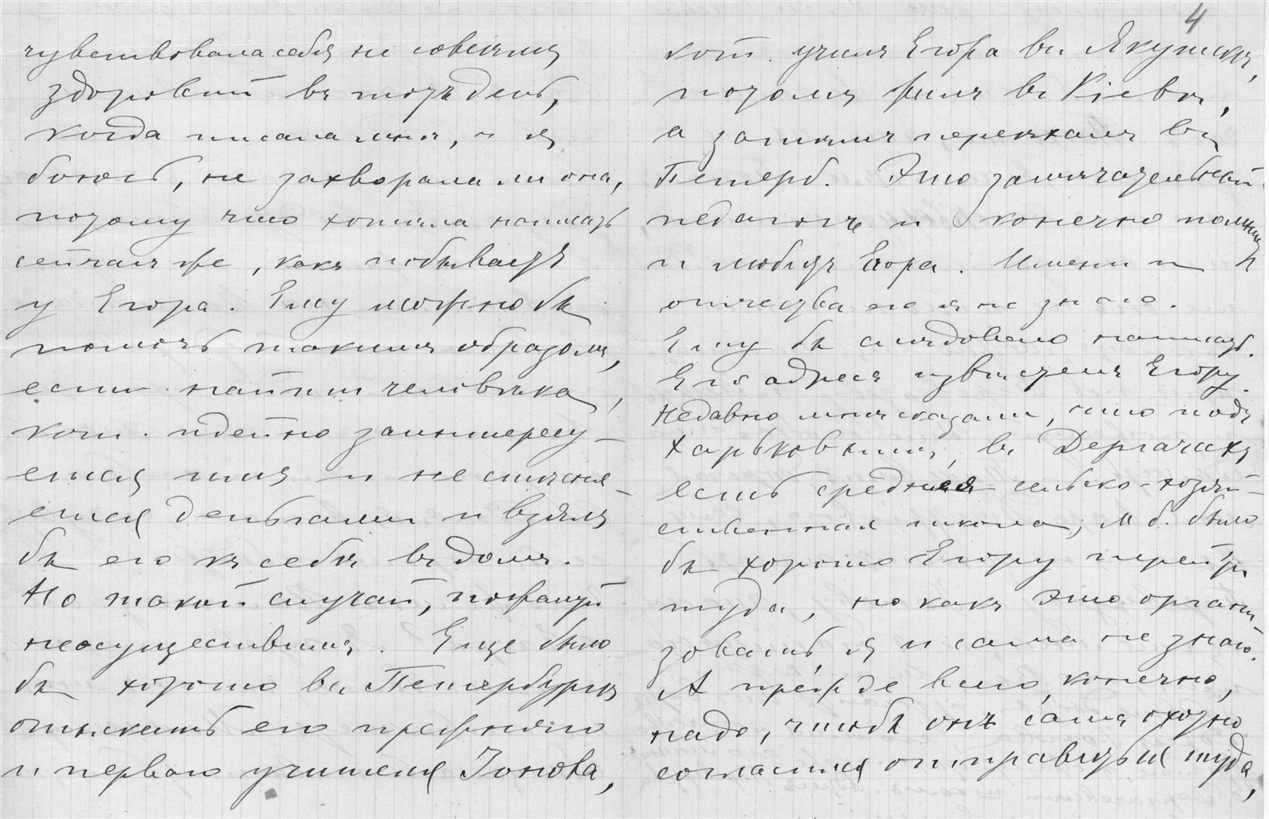 чувствовала себя не совсѣмъ
здоровый въ тотъ день,
когда писала мнѣ, и я
боюсь, не захворала ли она,
потому что хотѣла написать
сейчасъ же, какъ побываетъ
у Егора. Ему можно бы
помочь такимъ образомъ,
если найти человѣка,
кот. идейно заинтересу-
ется имъ и не стѣсня-
ется деньгами и взялъ
бы его къ себѣ въ домъ.
Но такой случай, пожалуй
неосуществимъ. Еще было
бы хорошо въ Петербургѣ
отыскать его прежняго
и перваго учителя Іонова,
4
кот. училъ Егора въ Якутскѣ,
потомъ жилъ въ Кіевѣ,
а затѣмъ переѣхалъ въ
Петерб. Это замѣчательный
педагогъ и конечно помнитъ
и любитъ Егора. Имени и
отчества его я не знаю.
Ему бы слѣдовало написать.
Его адресъ извѣстенъ Егору.
Недавно мнѣ сказали, что подъ
Харьковымъ, въ Дергачахъ
есть средняя сельско-хозяй-
ственная школа, м. б. было
бы хорошо Егору перейти
туда, но какъ это органи
зовать, я и сама не знаю.
А прежде всего, конечно,
надо, чтобы онъ самъ охотно
согласился отправиться туда,